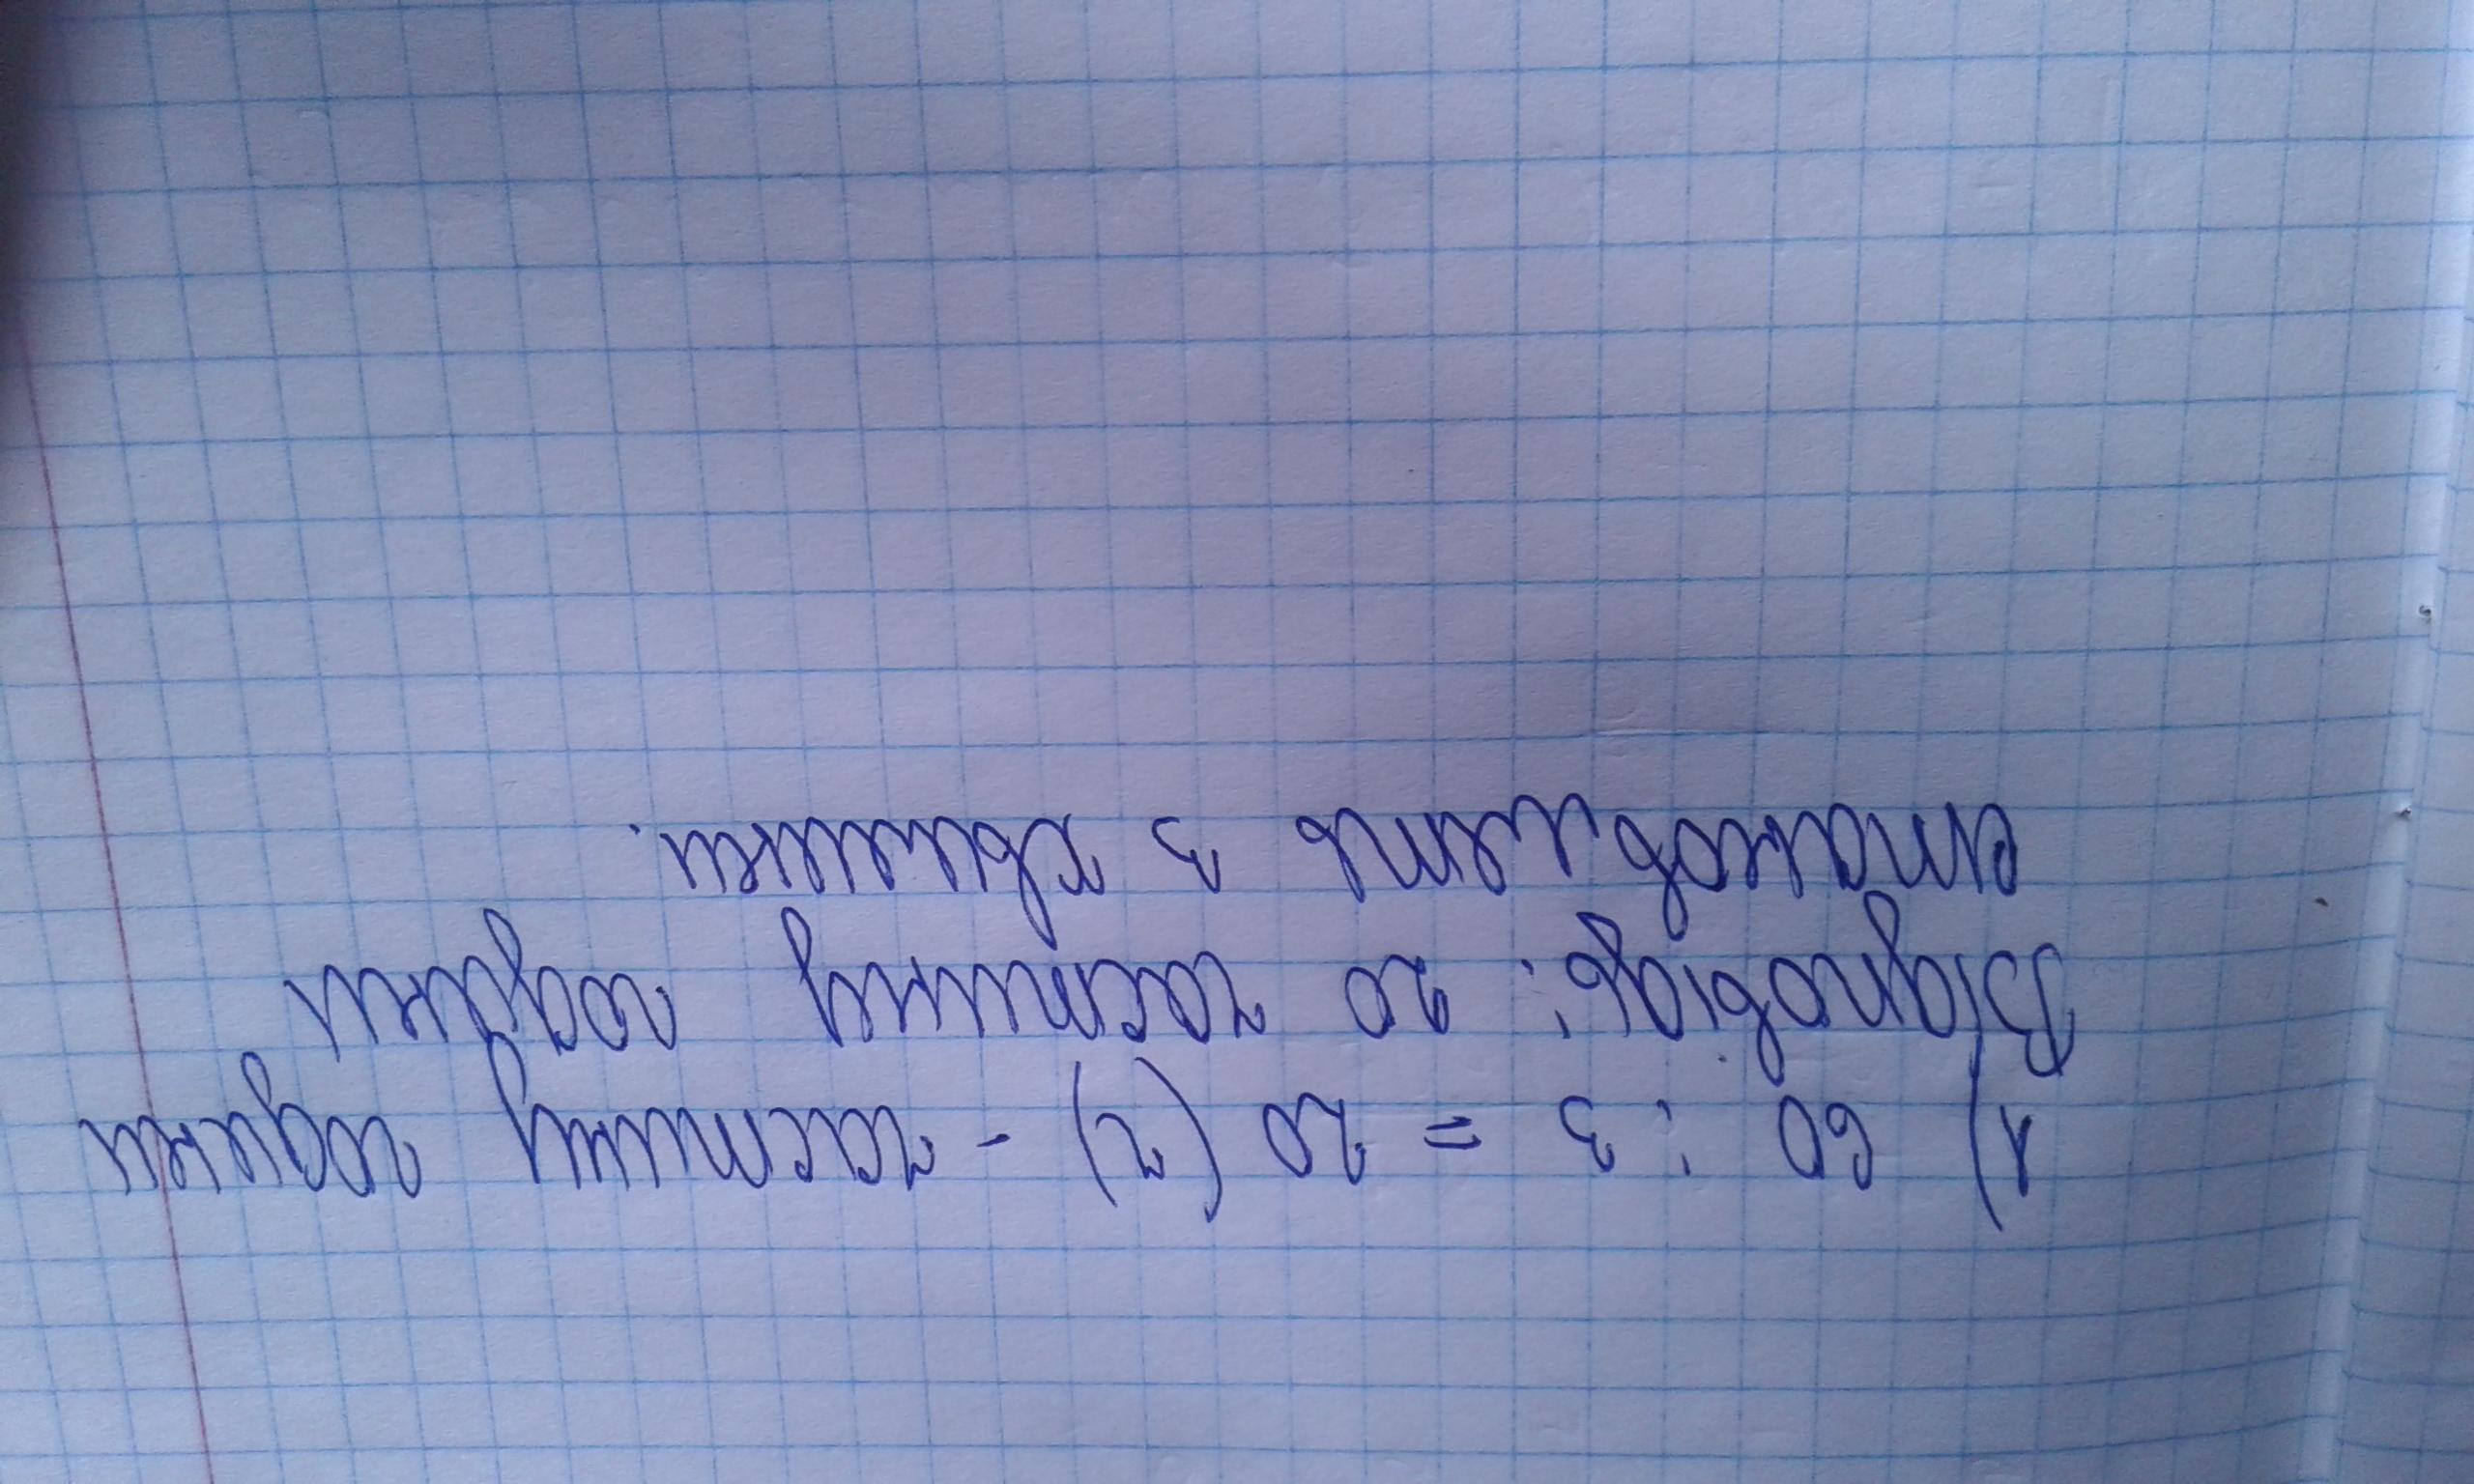 1) 60 : 3 = 20 (г) - частину години
Відповідь: 20 частину години
становлять 3 хвилини.